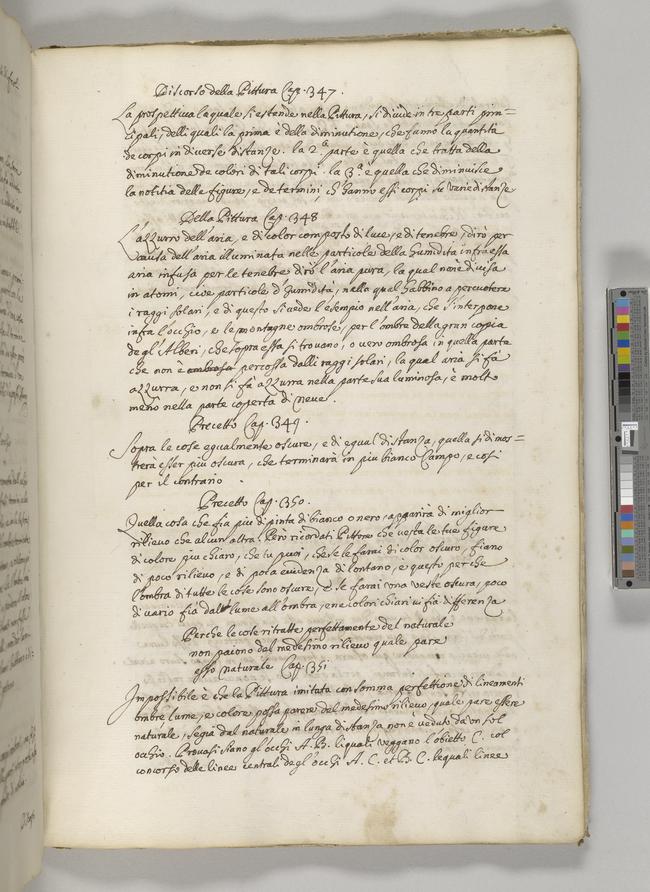 Discorso della Pittura Cap. 347.
La prospettiva la quale si estende nella Pittura, si divide in tre parti prin=
cipali, delli quali la prima è della diminutione, che fanno la quantita
de corpi in diverse distanze. la 2ª parte è quella che tratta della
diminutione de colori di tali corpi. la 3ª e quella che diminuisce
la notitia delle figure, e de termini, ch hanno essi corpi su varie distanze
Della Pittura Cap. 348
L'azzurro dell'aria, e di color composto di luce, e di tenebre, dirò per
causa dell'aria illuminata nelle particole della humidita infra essa
aria infusa per le tenebre dirò l'aria pura, la qual non è divisa
in atomi, cioe particole d humidita, nella qual habbino a percuotere
i raggi solari, e di questo si vede l'esempio nell'aria, che s'interpone
infra l'occhio, e le montagne ombrose, per l'ombre della gran copia
degl'Alberi, che sopra essa si trovano, o vero ombrosa in quella parte
che non è ombrosa percossa dalli raggi solari, la qual aria si fa
azzurra, e non si fa azzurra nella parte sua luminosa, è molto
meno nella parte coperta di neve.
Precetto Cap. 349.
Sopra le cose egualmente oscure, e di egual distanza, quella si dimos=
trera esser piu oscura, che terminarà in piu bianco Campo, e così
per il contrario
Precetto Cap. 350.
Quella cosa che fia piu dipinta di bianco o nero, apparirà di miglior
rilievo che alcun'altra. Però ricordati Pittore che vesta le tue figure
di colore piu chiaro, che tu puoi, che se le farai di color oscuro, fiano
di poco rilievo, e di poca evidenza di lontano, e questo perche
l'ombra di tutte le cose sono oscure, e se farai una veste oscura, poco
di vario fia dal lume all'ombra, e ne colori chiari vi fia differenza
Perche le cose ritratte perfettamente del naturale
non paiono dal medesimo rilievo quale pare
esso naturale Cap. 351
Impossibile è che la Pittura imitata con somma perfettione di lineamenti
ombre, lume, e colore possa parere del medesimo rilievo quale pare essere
naturale, se gia dal naturale in lunga distanza non è veduti da un sol
occhio. Provasi siano gl'occhi A. B. li quali veggano l'obietto C. col
concorso delle linee centrali degl'occhi A. C. et B. C. le quali linee